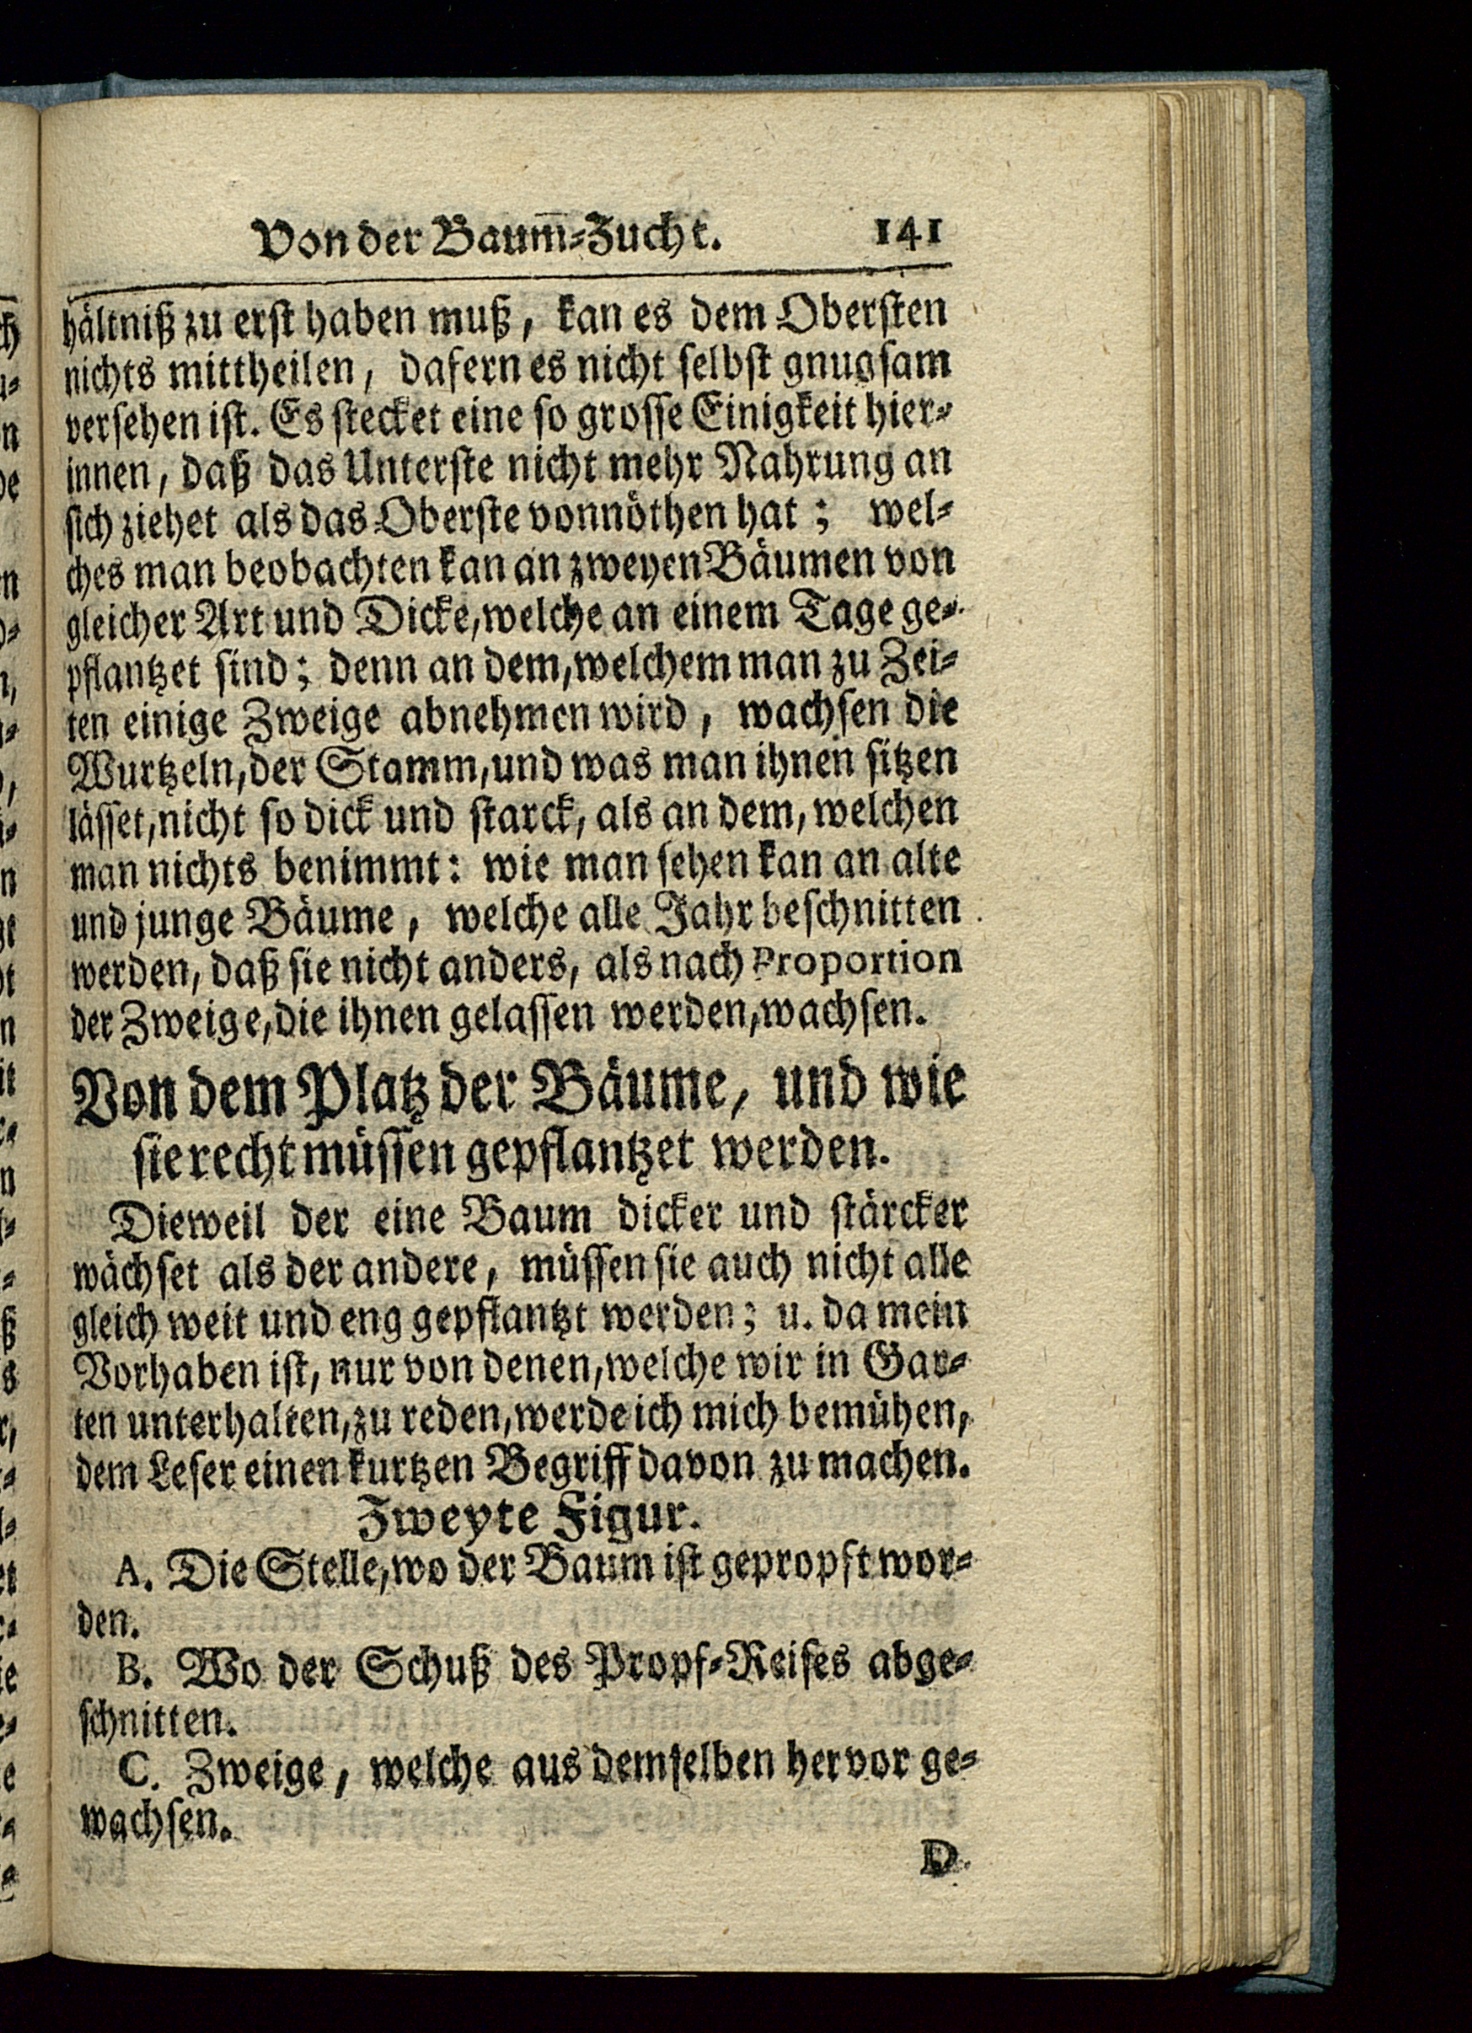 Von der Baum̅-Zucht. 141
hältniß zu erst haben muß, kan es dem Obersten
nichts mittheilen, dafern es nicht selbst gnugsam
versehen ist. Es stecket eine so grosse Einigkeit hier-
innen, daß das Unterste nicht mehr Nahrung an
sich ziehet als das Oberste vonnöthen hat; wel-
ches man beobachten kan an zweyen Bäumen von
gleicher Art und Dicke, welche an einem Tage ge-
pflantzet sind; denn an dem, welchem man zu Zei-
ten einige Zweige abnehmen wird, wachsen die
Wurtzeln, der Stamm, und was man ihnen sitzen
lässet, nicht so dick und starck, als an dem, welchen
man nichts benimmt: wie man sehen kan an alte
und junge Bäume, welche alle Jahr beschnitten
werden, daß sie nicht anders, als nach Proportion
der Zweige, die ihnen gelassen werden, wachsen.
Von dem Platz der Bäume, und wie
sie recht müssen gepflantzet werden.
Dieweil der eine Baum dicker und stärcker
wächset als der andere, müssen sie auch nicht alle
gleich weit und eng gepflantzt werden; u. da mein
Vorhaben ist, nur von denen, welche wir in Gar-
ten unterhalten, zu reden, werde ich mich bemühen,
dem Leser einen kurtzen Begriff davon zu machen.
Zweyte Figur.
A. Die Stelle, wo der Baum ist gepropft wor-
den.
B. Wo der Schuß des Propf-Reises abge-
schnitten.
C. Zweige, welche aus demselben hervor ge-
wachsen.
D.